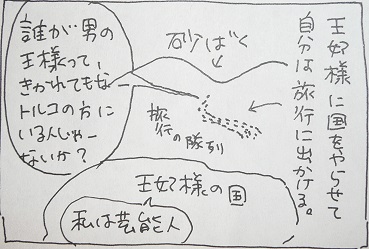 王妃様に国をやらせて
自分は旅行に出かける。
砂ばく
旅行の隊列
誰が男の
王様くって、
きかれてもなー
トルコの方に
いる人じゃー
ないか?
王妃様の国
私は芸能人